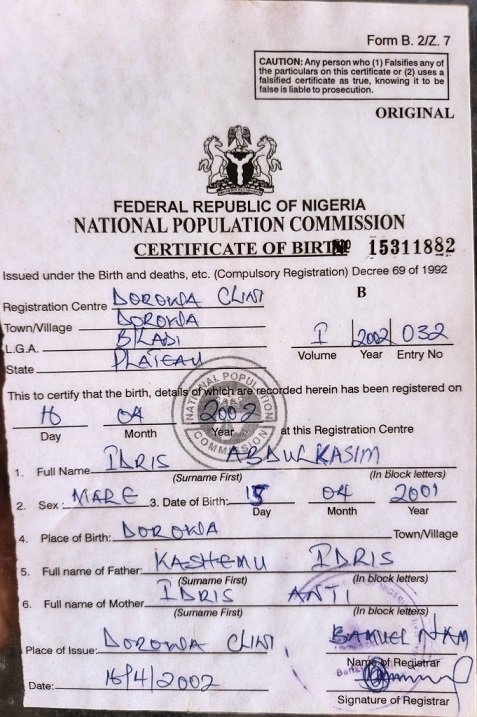 Form B. 2/Z. 7
CAUTION: Any person who (1) Falsifies any of
the particulars on this certificate or (2) uses a
falsified certificate as true, knowing it to be
false is liable to prosecution.
ORIGINAL
FEDERAL REPUBLIC OF NIGERIA
NATIONAL POPULATION COMMISSION
CERTIFICATE OF BIRTH No 15311882
Issued under the Birth and deaths, etc. (Compulsory Registration) Decree 69 of 1992
B
Registration Centre DOROWA CLINI
Town/Village DOROWA
L.G.A. B/LADI I 2002 032
Volume Year Entry No
State PLATEAU
This to certify that the birth, details of which are recorded herein has been registered on
16 04 2002 at this Registration Centre
Day Month Year
NATIONAL POPULATION COMMISSION
1. Full Name IDRIS ABDULKASIM
(Surname First) (In block letters)
2. Sex: MARE 3. Date of Birth: 15 04 2001
Day Month Year
4. Place of Birth: DOROWA Town/Village
5. Full name of Father: KASHEMU IDRIS
(Surname First) (In block letters)
6. Full name of Mother: IDRIS ANTI
(Surname First) (In block letters)
Place of Issue: DOROWA CLINI
Name of Registrar
Date: 16/4/2002
Signature of Registrar